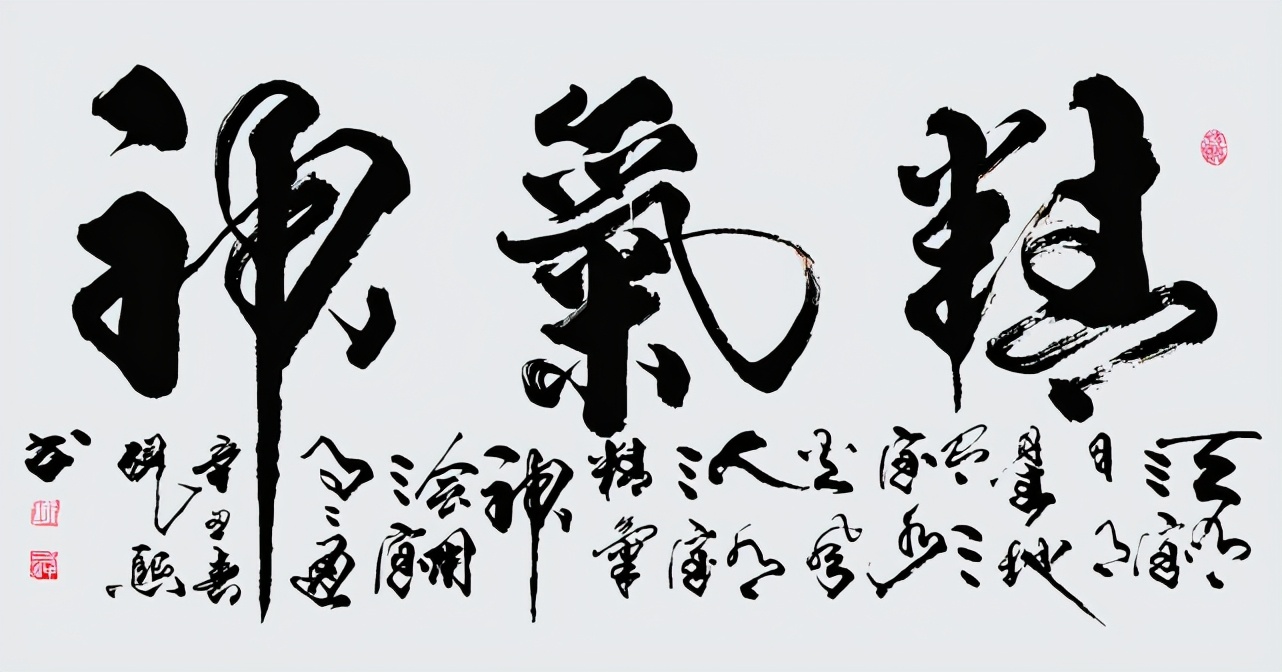 精氣神
天有
三寶
日月
星地
有三
寶水
火風
人有
三寶
精氣
神
会用
三寶
通
辛丑春
书